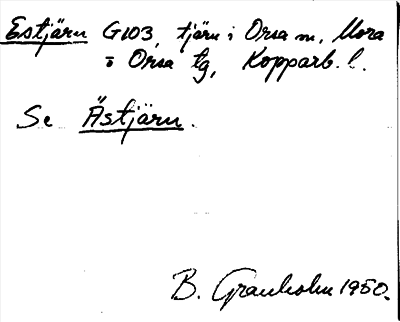 Estjärn G103, tjärn i Orsa m, Mora
o Orsa tg, Kopparb. l.
Se Ästjärn.
B. Granholm 1950.